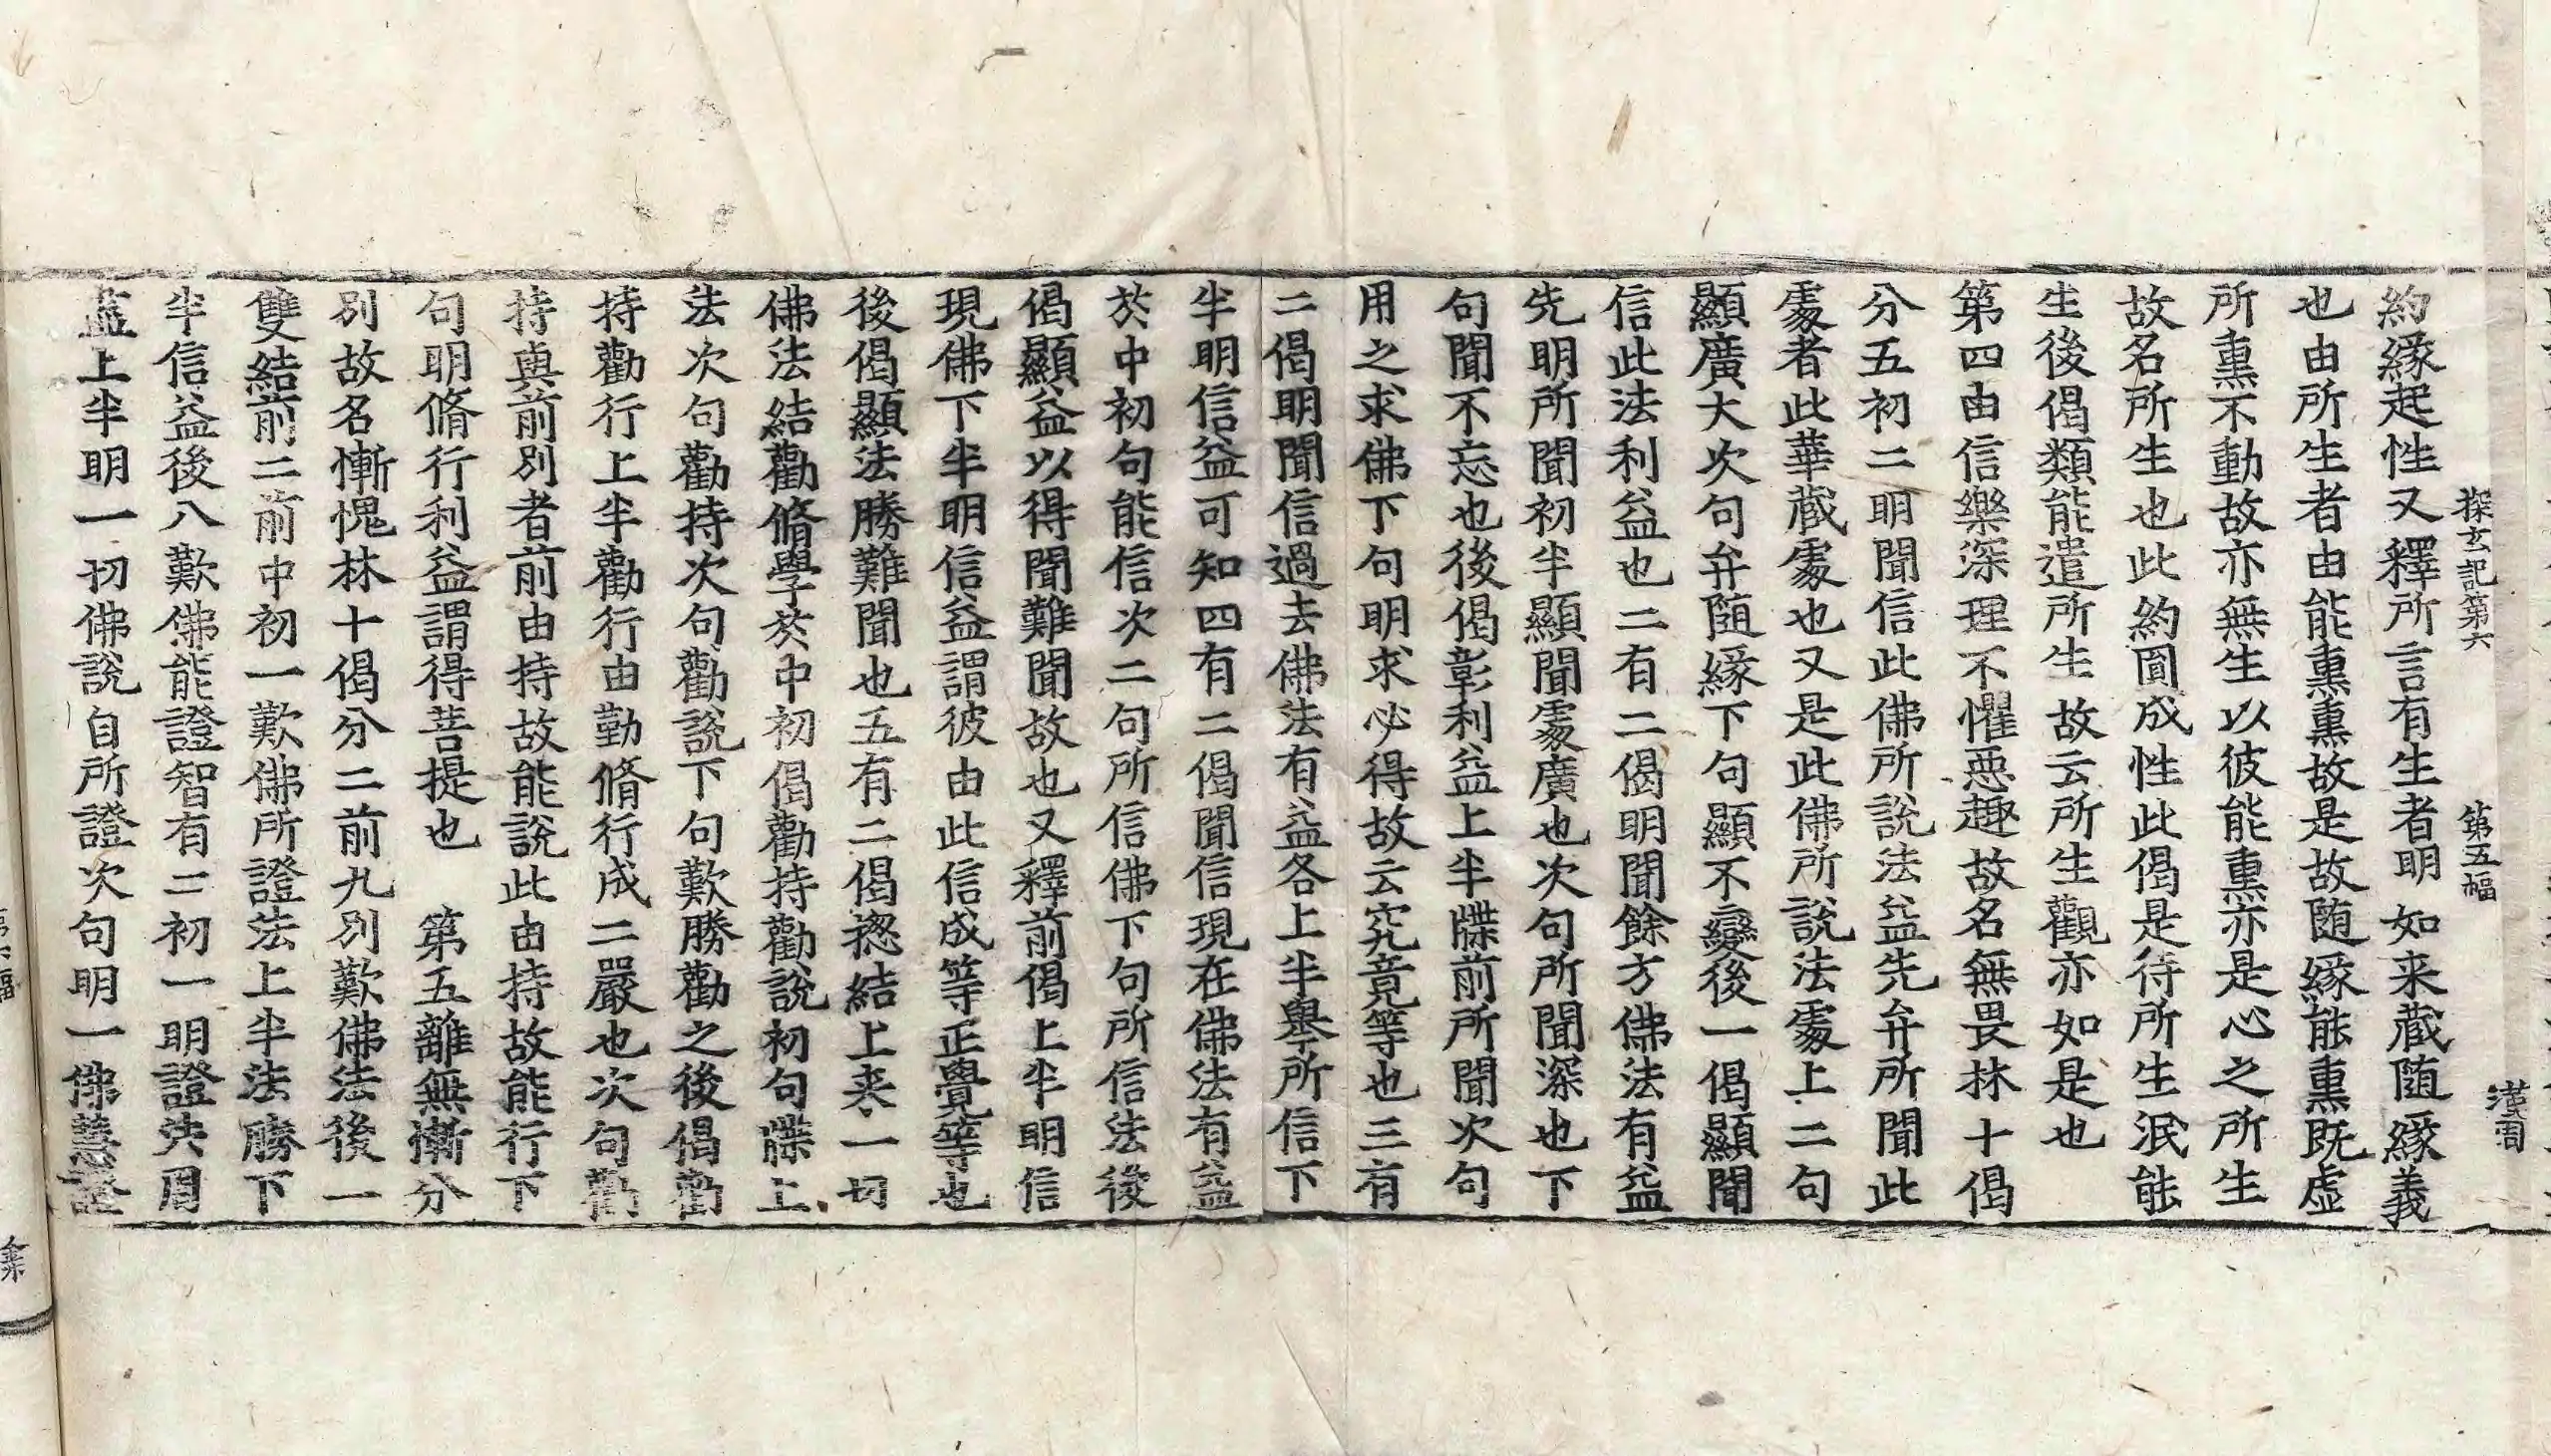 探玄記第六 第五幅 漢周
約緣起性又釋所言有生者明如来藏随緣義
也由所生者由能熏熏故是故随緣能熏既虛
所熏不動故亦無生以彼能熏亦是心之所生
故名所生也此約圓成性此偈是待所生泯能
生後偈類能遣所生故云所生觀亦如是也
第四由信樂深理不懼惡趣故名無畏林十偈
分五初二明聞信此佛所說法益先弁所聞此
處者此華藏處也又是此佛所說法處上二句
顯廣大次句弁随緣下句顯不變後一偈顯聞
信此法利益也二有二偈明聞餘方佛法有益
先明所聞初半顯聞處廣也次句所聞深也下
句聞不忘也後偈彰利益上半牒前所聞次句
用之求佛下句明求必得故云究竟等也三有
二偈明聞信過去佛法有益各上半舉所信下
半明信益可知四有二偈聞信現在佛法有益
於中初句能信次二句所信佛下句所信法後
偈顯益以得聞難聞故也又釋前偈上半明信
現佛下半明信益謂彼由此信成等正覺等也
後偈顯法勝難聞也五有二偈揔結上来一切
佛法結勸脩學於中初偈勸持勸說初句牒上
法次句勸持次句勸說下句歎勝勸之後偈勸
持勸行上半勸行由勤脩行成二嚴也次句勸
持與前別者前由持故能說此由持故能行下
句明脩行利益謂得菩提也 第五離無慚分
別故名慚愧林十偈分二前九別歎佛法後一
雙結前二前中初一歎佛所證法上半法勝下
半信益後八歎佛能證智有二初一明證决用
益上半明一切佛說自所證次句明一佛慧證